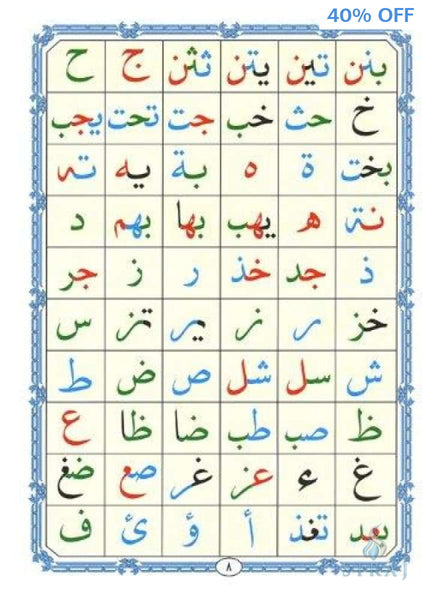 40% OFF
بنن تين يتن ثثن ج ح
خ حث خب جت تحت يجب
بخت ة ه بة يه ته
نة ه يهب بها بهم د
ذ جد خذ ر ز جر
خز ر ز ير تز س
ش سل شل ص ض ط
ظ صب طب ضا ظا ع
غ ء عز غر صع ضغ
بعد تغذ أ ؤ ئ ف
٨